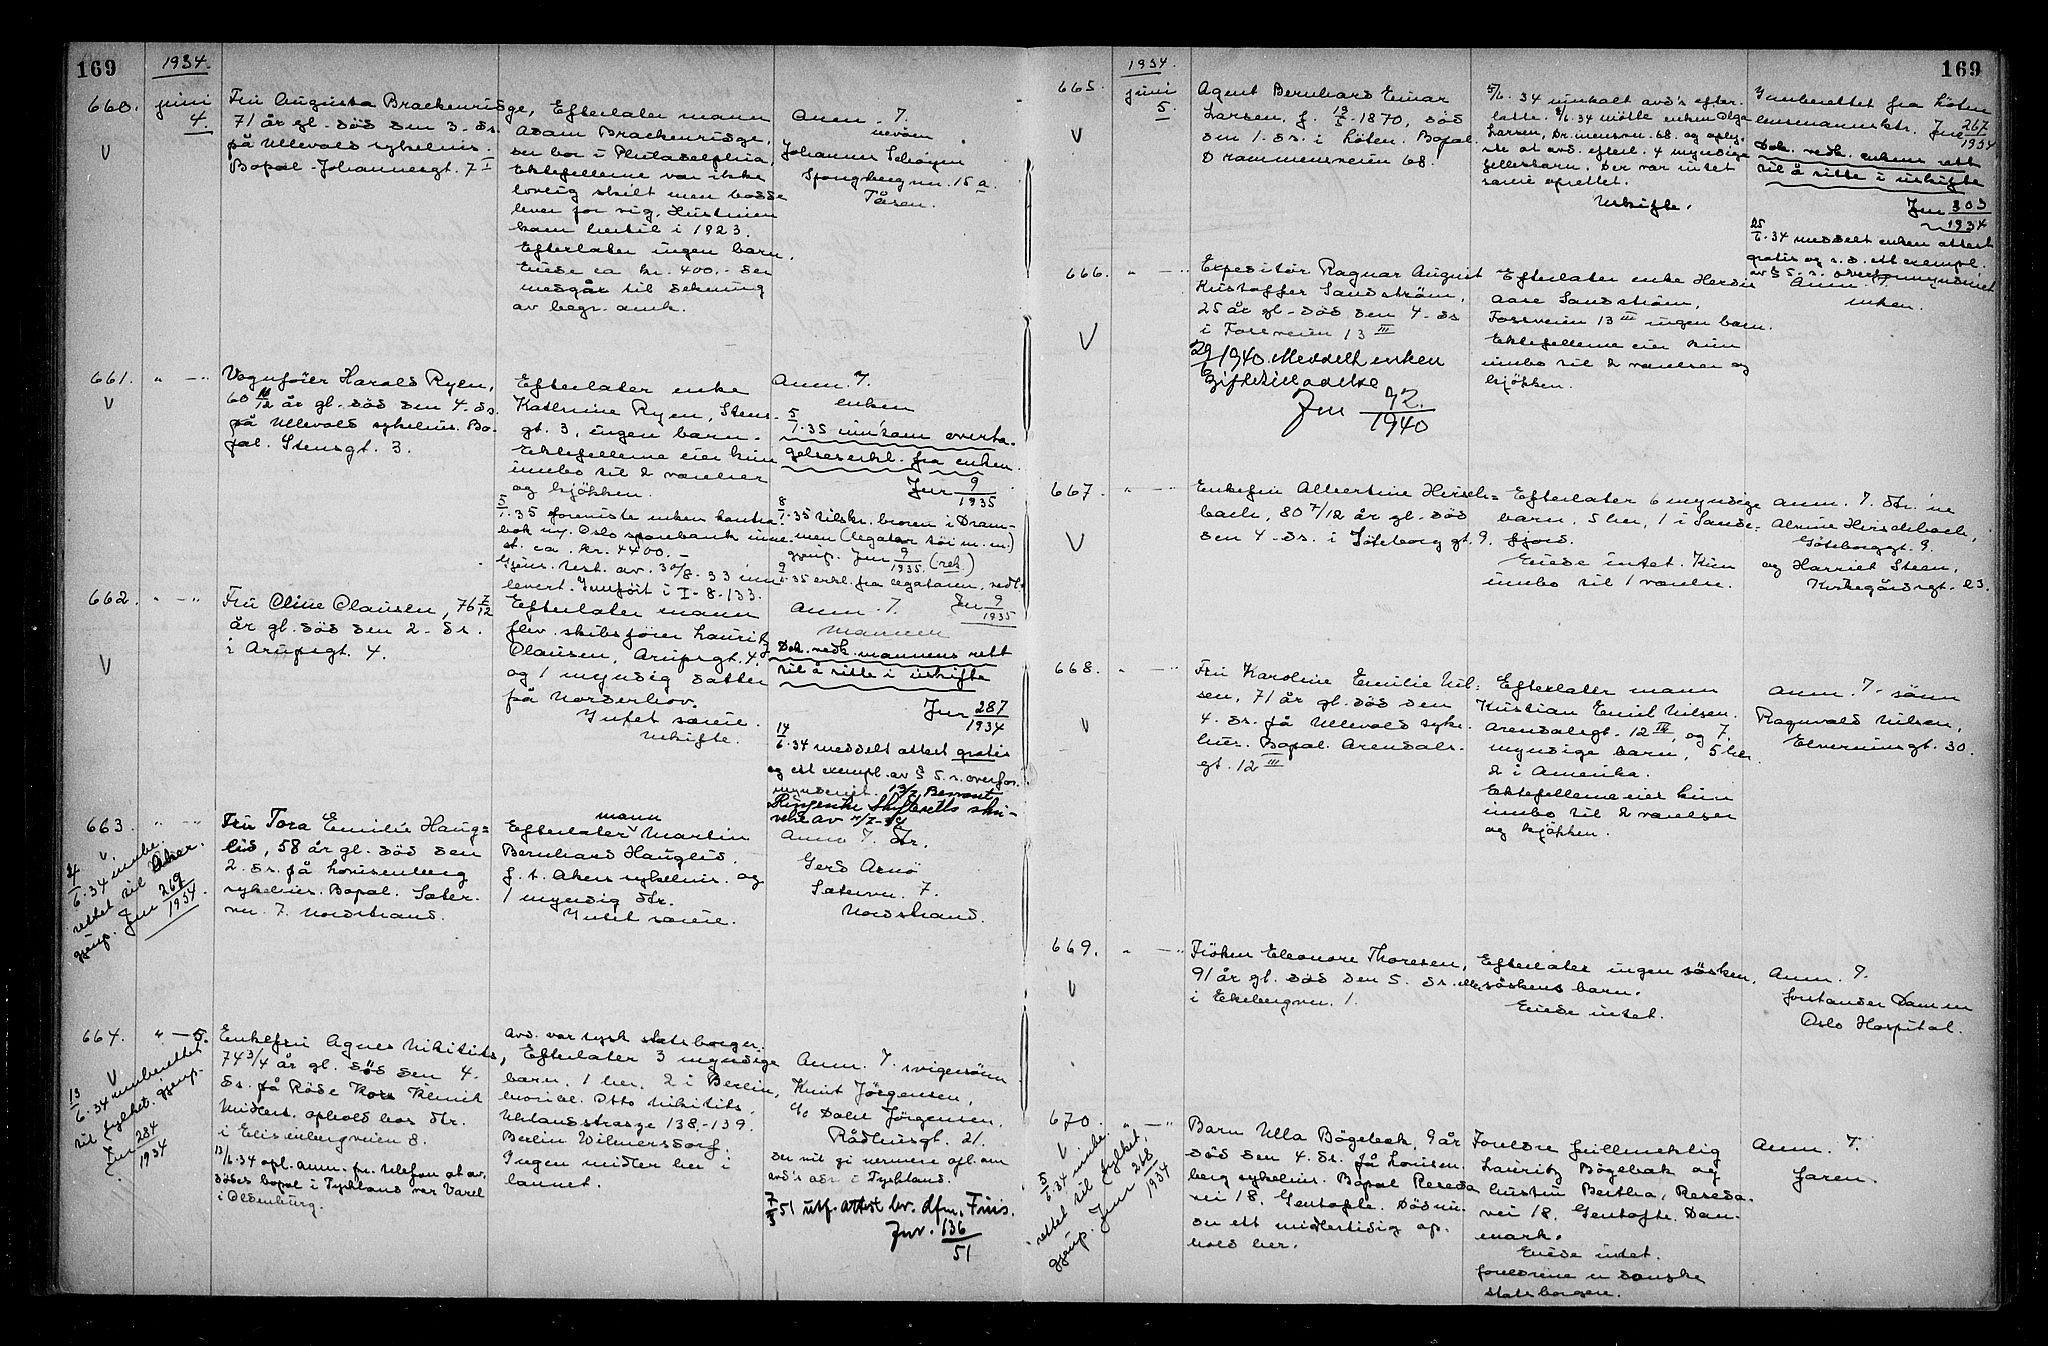 169
1934.
660.
juni
4.
V
Fru Augusta Brackenridge,
71 år gl. död den 3. ds.
på Ullevold sykehus.
Bopal. Johannesgt. 7 I
Efterlater mann
Adam Brackenridge,
der bor i Philadelphia,
Ektefellerne var ikke
lovlig skilt men bodde
hver for sig. Hustruen
kom hertil i 1923.
Efterlater ingen barn.
Eiede ca kr. 400.- der
medgår til dekning
av begr. omk.
Anm. 7.
nevöen
Johannes
Spongbergvn. 15 a.
Tåsen.
661.
" — "
V
Vognföier Harald Ryen,
60 10/12 år gl. död den 4. ds.
på Ullevold sykehus. Bo-
pal. Stensgt. 3.
Efterlater enke
Kathrine Ryen, Stens-
gt. 3, ingen barn.
Ektefellerne eier kun
innbo til 2 værelser
og kjökken.
5/1.35 foreviste enken kontra-
bok ny. Oslo sparebank inne-
st. ca. kr. 4400.-
Gjens. test. av 30/8.33 inn
levert. Innföit i I-8-133.
Anm. 7.
enken
5/1.35 inn'kom overta-
gelseserkl. fra enken.
Jnr 9/1935
8/1.35 tilskr. broren i Dram-
men (legatar töi m.m.)
gjenp. Jnr 9/1935. (rek.)
9/1.35 erkl. fra legataren, vedl.
Jnr 9/1935
662.
" — "
V
Fru Oline Clausen, 76 7/12
år gl. död den 2. ds.
i Arupsgt. 4.
Efterlater mann
flev. skibsförer Lauritz
Clausen, Arupsgt. 4,
og 1 myndig datter
på Norderhov.
Intet særeie.
Uskifte.
Anm. 7.
mannen
Dok. vedk. mannens rett
til å sitte i uskifte
Jnr 287/1934
14/6.34 meddelt attest gratis
og ett exempl. av § 5. s. overfor-
mynderiet. 13/7 Besvart
Ringerike Skifteretts skri-
velse av
663.
" — "
V
Fru Tora Emilie Haug-
lid, 58 år gl. död den
2. ds. på Lovisenberg
sykehus. Bopal. Sæter-
vn. 7. Nordstrand.
4/6.34 innbe-
rettet til Aker.
gjenp. Jnr 269/1934
mann
Efterlater Martin
Bernhard Hauglid.
f. t. Akers sykehus. og
1 myndig dtr.
Intet særeie.
Anm. 7. dtr.
Gerd Arnö
Sætervn. 7.
Nordstrand.
664.
" — 5.
V
Enkefru Agnes Nikitits,
74 3/4 år gl. död den 4.
ds. på Röde Kors Klinik
Midlert. ophold hos dtr.
i Elisenbergveien 8.
13/6.34 opl. anm. pr. telefon at av-
dödes bopal i Tyskland var Varel
i Oldenburg.
13/6.34 innberettet
til fylket. gjenp.
Jnr 284/1934
Avd. var tysk statsborger.
Efterlater 3 myndige
barn. 1 her, 2 i Berlin,
hvorav Otto Nikitits,
Uhlandstrasze 138-139.
Berlin Wilmersdorf.
Ingen midler her i
landet.
Anm. 7. svigersönn
Knut Jörgensen,
c/o Dahl Jörgensen,
Rådhusgt. 21.
der vil gi nermere opl. om
avd's adr. i Tyskland.
7/3 51 utf. attest
Jnr. 136/51
169
1934.
665.
juni
5.
V
Agent Bernhard Einar
Larsen, f. 19/5.1870, död
den 1. ds. i Löten. Bopal.
Drammensveien 68.
5/6.34 innkalt avd's efter-
latte. 8/6.34 mötte enken Olga
Larsen, Dr.mensvn. 68. og oplys-
te at avd. efterl. 4 myndige
fellesbarn. Der var intet
særeie oprettet.
Uskifte.
Innberettet fra Löten
lensmannsktr. Jnr 267/1934
Dok. vedk. enkens rett
til å sitte i uskifte
Jnr 303/1934
25/6.34 meddelt enken attest
gratis og s. d. ett exempl.
av § 5. s. overformynderiet
666.
" — "
V
Expeditör Ragnar August
Kristoffer Sandström,
25 år gl. död den 4. ds
i Fossveien 13 III
1940. Meddelt enken
giftetilladelse
Jnr 92/1940
Efterlater enke Herdis
Aase Sandström,
Fossveien 13 III ingen barn.
Ektefellerne eier kun
innbo til 2 værelser og
kjökken.
Anm. 7.
enken.
667.
" — "
V
Enkefru Albertine Hirsch-
bach, 80 7/12 år gl. död
den 4. ds. i Göteborggt. 9.
Efterlater 6 myndige
barn. 5 her, 1 i Sande-
fjord.
Eiede intet. Kun
innbo til 1 værelse.
Anm. 7. dtr.'ne
Alvine Hirschbach,
Göteborggt. 9.
og Harriet Steen,
Kirkegårdsgt. 23.
668.
" — "
V
Fru Karoline Emilie Nil-
sen, 71 år gl. död den
4. ds. på Ullevold syke-
hus. Bopal. Arendals-
gt. 12 III
Efterlater mann
Kristian Emil Nilsen.
Arendalsgt. 12 III, og 7
myndige barn, 5 her
2 i Amerika.
Ektefellerne eier kun
innbo til 2 værelser
og kjökken.
Anm. 7. sönn
Ragnvald Nilsen,
Elverumsgt. 30.
669.
" — "
V
Fröken Eleonore Thoresen,
91 år gl. död den 5. ds.
i Ekebergvn. 1.
Efterlater ingen sösken,
eller söskens barn.
Eiede intet.
Anm. 7.
forstander Damm
Oslo Hospital.
670.
" — "
V
Barn Ulla Bögebak, 9 år
död den 4. ds. på Lovisen-
berg sykehus. Bopal Reseda-
vei 18. Gentofte. Död un-
der ett midlertidig op-
hold her.
5/6.34 innbe-
rettet til fylket,
gjenp. Jnr 268/1934
Foreldre fuldmektig
Lauritz Bögebak og
hustru Bertha, Reseda-
vei 18. Gentofte. Dan-
mark.
Eiede intet.
foreldrene er danske
statsborgere.
Anm. 7.
faren.